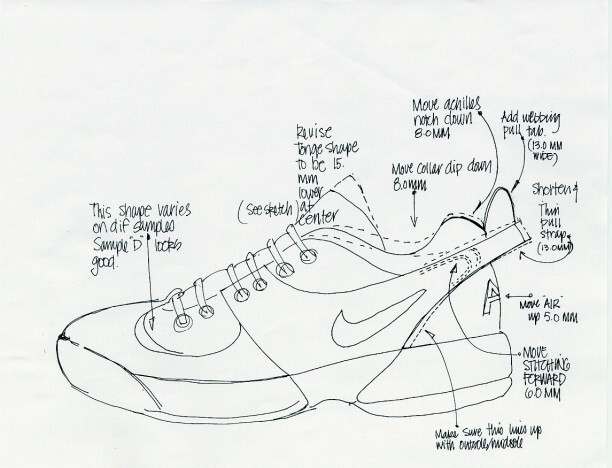 Move achilles
notch down
8.0MM
Add webbing
pull tab.
(13.0 MM
WIDE)
Revise
Tonge shape
to be 15.
mm
lower
at
center
(see sketch)
Move collar dip down
8.0mm
Shorten &
Thin
pull
strap.
(13.0mm)
This shape varies
on dif samples
Sample "D" looks
good.
A
Move "AIR"
up 5.0 MM
MOVE
STITCHING
FORWARD
6.0 MM
Make sure this lines up
with outsole/midsole